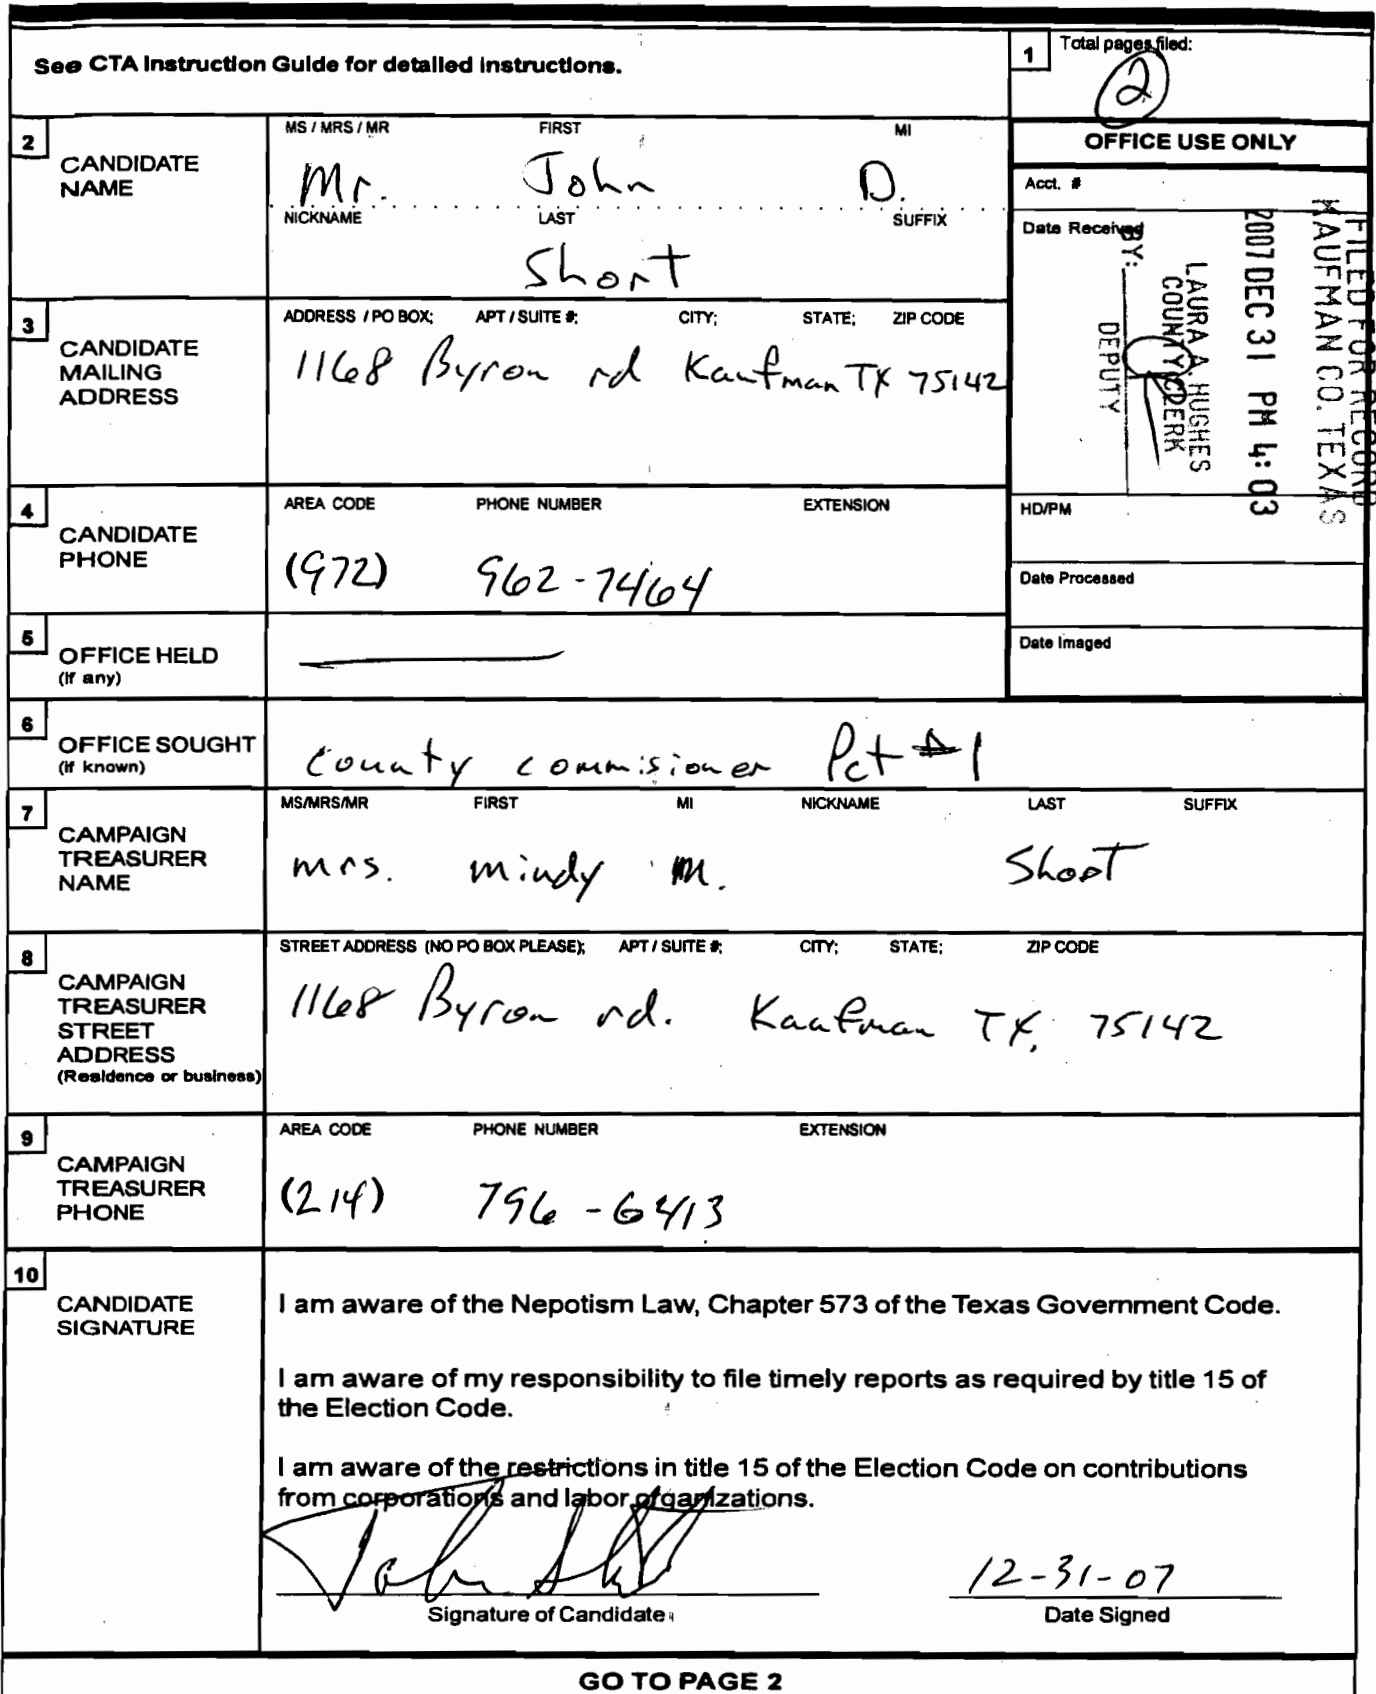 See CTA Instruction Guide for detailed instructions.
1 Total pages filed:
2
2 CANDIDATE NAME
MS / MRS / MR FIRST MI
Mr. John D.
NICKNAME LAST SUFFIX
Short
OFFICE USE ONLY
Acct. #
Date Received
FILED FOR RECORD
KAUFMAN CO. TEXAS
2007 DEC 31 PM 4:03
LAURA A HUGHES
COUNTY CLERK
BY:
DEPUTY
HD/PM
Date Processed
Date Imaged
3 CANDIDATE MAILING ADDRESS
ADDRESS / PO BOX; APT / SUITE #; CITY; STATE; ZIP CODE
1168 Byron rd Kaufman TX 75142
4 CANDIDATE PHONE
AREA CODE PHONE NUMBER EXTENSION
(972) 962-7464
5 OFFICE HELD
(if any)
6 OFFICE SOUGHT
(if known)
county commisioner Pct #1
7 CAMPAIGN TREASURER NAME
MS/MRS/MR FIRST MI NICKNAME LAST SUFFIX
mrs. mindy M. Short
8 CAMPAIGN TREASURER STREET ADDRESS
(Residence or business)
STREET ADDRESS (NO PO BOX PLEASE); APT / SUITE #; CITY; STATE; ZIP CODE
1168 Byron rd. Kaufman TX, 75142
9 CAMPAIGN TREASURER PHONE
AREA CODE PHONE NUMBER EXTENSION
(214) 796-6413
10 CANDIDATE SIGNATURE
I am aware of the Nepotism Law, Chapter 573 of the Texas Government Code.
I am aware of my responsibility to file timely reports as required by title 15 of
the Election Code.
I am aware of the restrictions in title 15 of the Election Code on contributions
from corporations and labor organizations.
John Short
12-31-07
Signature of Candidate
Date Signed
GO TO PAGE 2